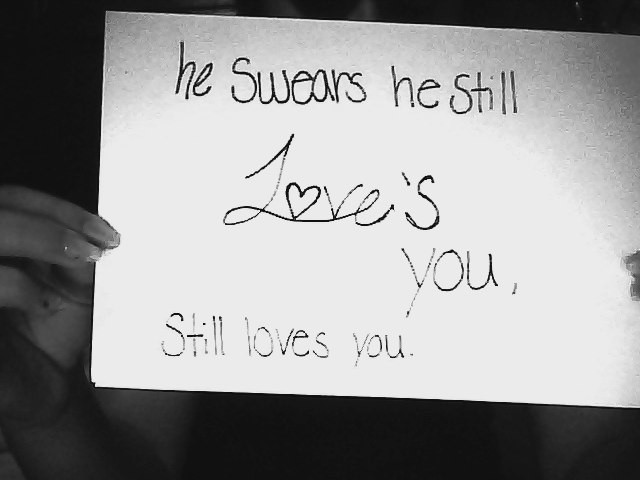 he swears he still
Love's
you,
Still loves you.